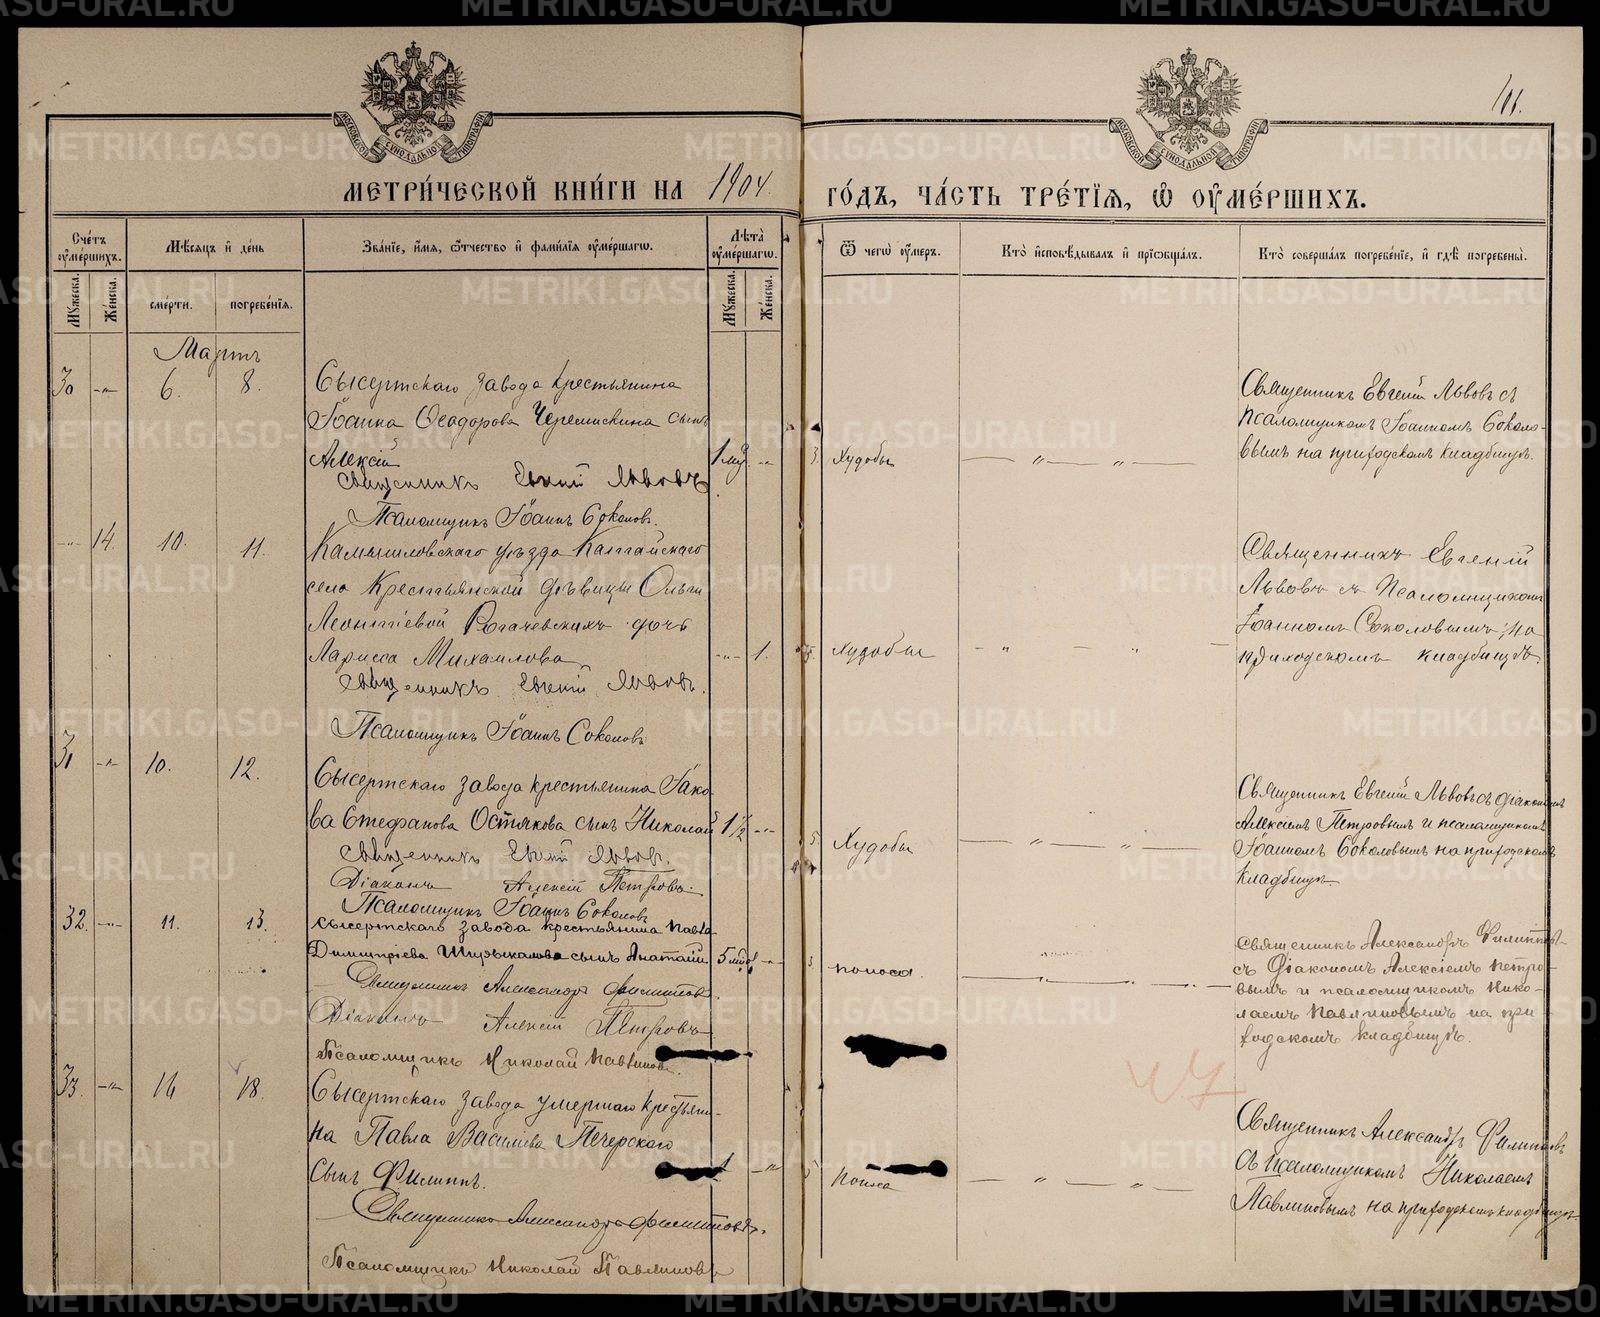 МЕТРИ́ЧЕСКОЙ КНИ́ГИ НА 1904
ГО́ДЪ, ЧА́СТЬ ТРЕ́ТЇЯ, Ѡ҆ ОУ҆МЕ́РШИХЪ.
Сче́тъ оу҆ме́ршихъ.
Мꙋжеска.
Же́нска.
Мѣ́сяцъ и҆ де́нь
сме́рти.
погребе́нїя.
Зва́нїе, и҆́мя, ѻ҆́тчество и҆ фами́лїя оу҆ме́ршагѡ.
Лѣта̀ оу҆ме́ршагѡ.
Мꙋжеска.
Же́нска.
Ѿ чегѡ̀ оу҆́меръ.
Кто̀ и҆сповѣ́дывалъ и҆ прїѡбща́лъ.
Кто̀ соверша́лъ погребе́нїе, и҆ гдѣ̀ погребены̀.
Мартъ
30 -"- 6. 8.
Сысертскаго завода крестьянина
Іоанна Ѳеодорова Черемискина сынъ
Алексій
Священникъ Евгеній Львовъ
Псаломщикъ Іоаннъ Соколовъ.
Худобы
Священникъ Евгеній Львовъ съ
Псаломщикомъ Іоанномъ Соколо-
вымъ на приходскомъ кладбищѣ.
-"- 14. 10. 11.
Камышловскаго уѣзда
села Крестьянской дѣвицы Ольги
Леонтіевой Рогачевскихъ дочь
Лариса Михаилова
-"- 1.
Священникъ Евгеній Львовъ.
Псаломщикъ Іоаннъ Соколовъ
Худобы
Священникъ Евгеній
Львовъ съ Псаломщикомъ
Іоанномъ Соколовымъ, на
приходскомъ кладбищѣ.
31 -"- 10. 12.
Сысертскаго завода крестьянина Іако-
ва Стефанова Остякова сынъ Николай 1 1/2 -"-
Священникъ Евгеній Львовъ.
Діаконъ Алексій Петровъ.
Псаломщикъ Іоаннъ Соколовъ
Худобы
Священникъ Евгеній Львовъ съ діакономъ
Алексіемъ Петровымъ и псаломщикомъ
Іоанномъ Соколовымъ на приходскомъ
кладбищѣ.
32. -"- 11. 13.
Сысертскаго завода крестьянина Павла
Димитріева сынъ
Священникъ Александръ Филипповъ.
Діаконъ Алексій Петровъ
Псаломщикъ Николай Павлиновъ.
поноса.
Священникъ Александръ Филипповъ
съ Діакономъ Алексіемъ Петро-
вымъ и псаломщикомъ Нико-
лаемъ Павлиновымъ на при
ходскомъ кладбищѣ.
33. -"- 16 18.
Сысертскаго завода умершаго крестьяни-
на Павла Василіева Печерскаго
сынъ Филиппъ.
1 -"-
Священникъ Александръ Филипповъ.
Псаломщикъ Николай Павлиновъ
Поноса
Священникъ Александръ Филипповъ
съ псаломщикомъ Николаемъ
Павлиновымъ на приходскомъ кладбищѣ.
METRIKI.GASO-URAL.RU